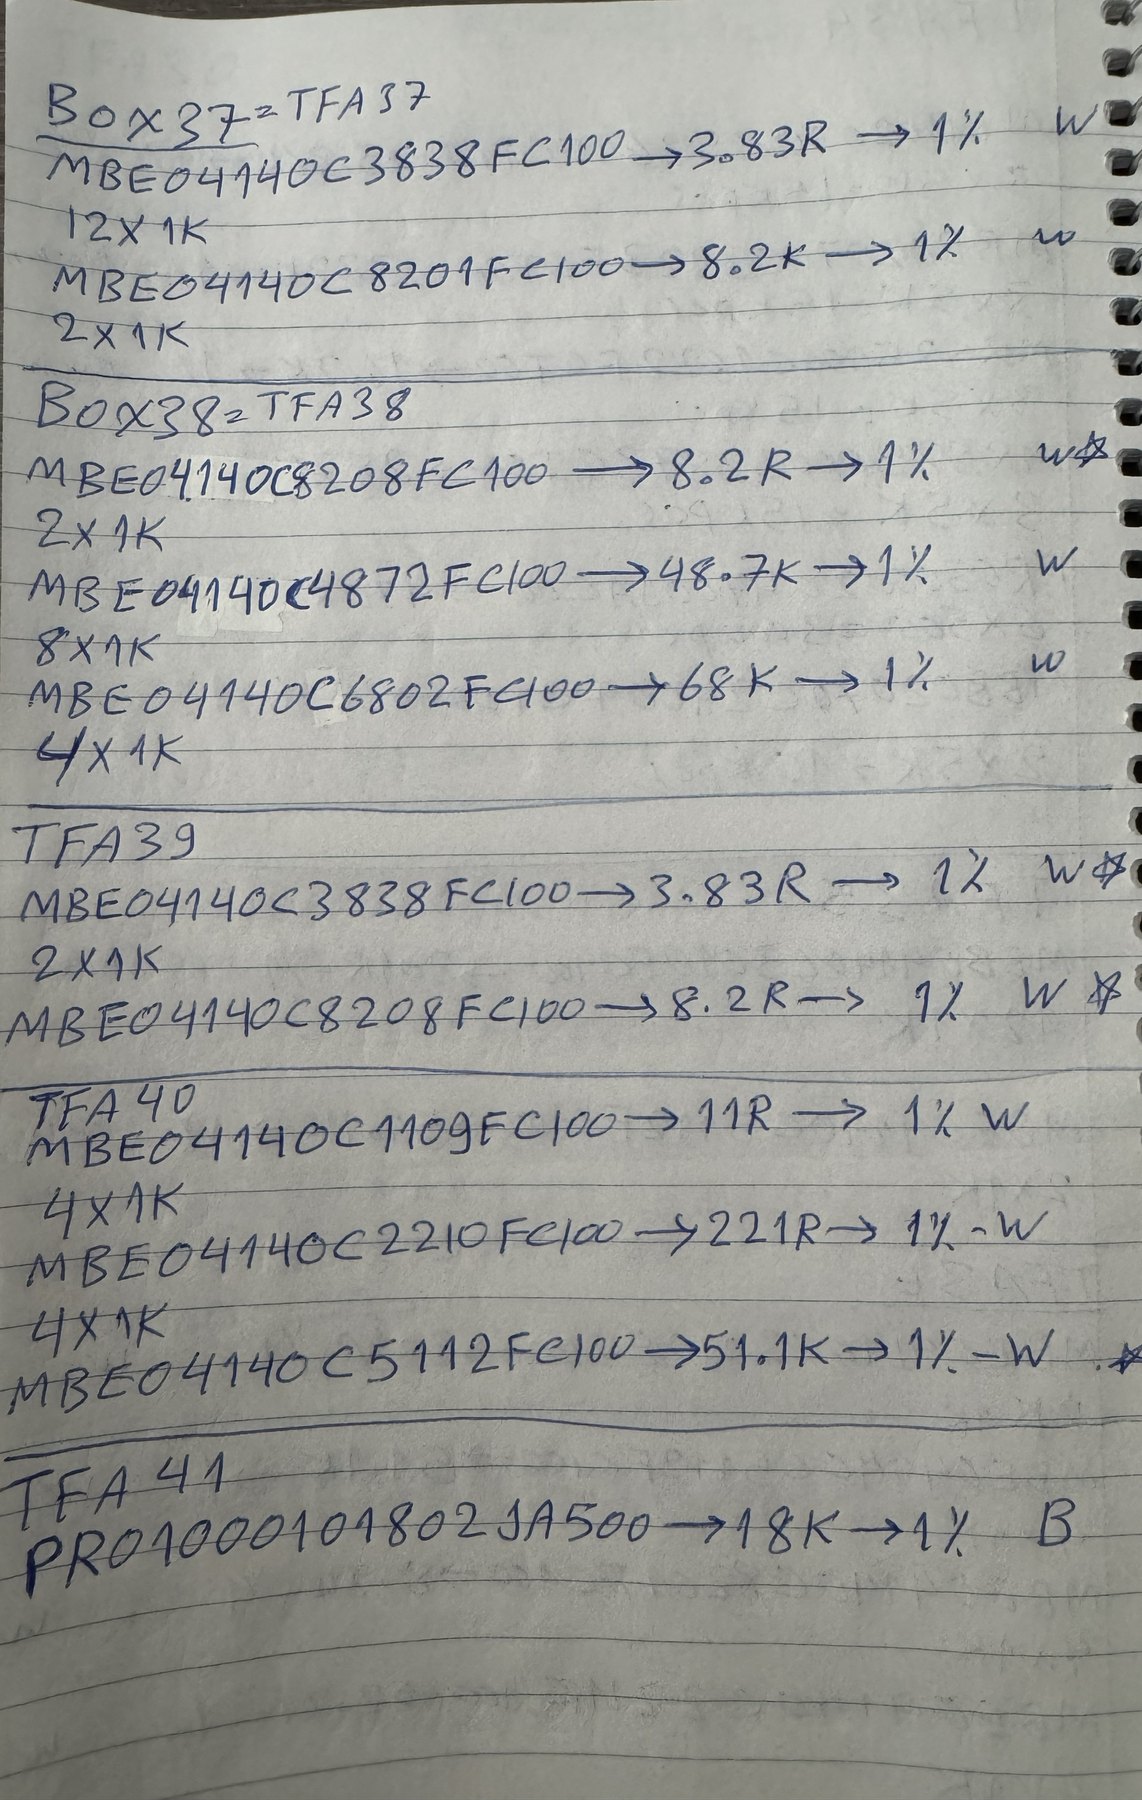 Box37=TFA37
MBE04140C3838FC100→3.83R→1% W
12X1K
MBE04140C8201FC100→8.2K→1% W
2X1K
Box38=TFA38
MBE04140C8208FC100→8.2R→1% W☆
2X1K
MBE04140C4872FC100→48.7K→1% W
8X1K
MBE04140C6802FC100→68K→1% W
4X1K
TFA39
MBE04140C3838FC100→3.83R→1% W☆
2X1K
MBE04140C8208FC100→8.2R→1% W☆
TFA40
MBE04140C1109FC100→11R→1% W
4X1K
MBE04140C2210FC100→221R→1%-W
4X1K
MBE04140C5112FC100→51.1K→1%-W ☆
TFA41
PR01000101802JA500→18K→1% B